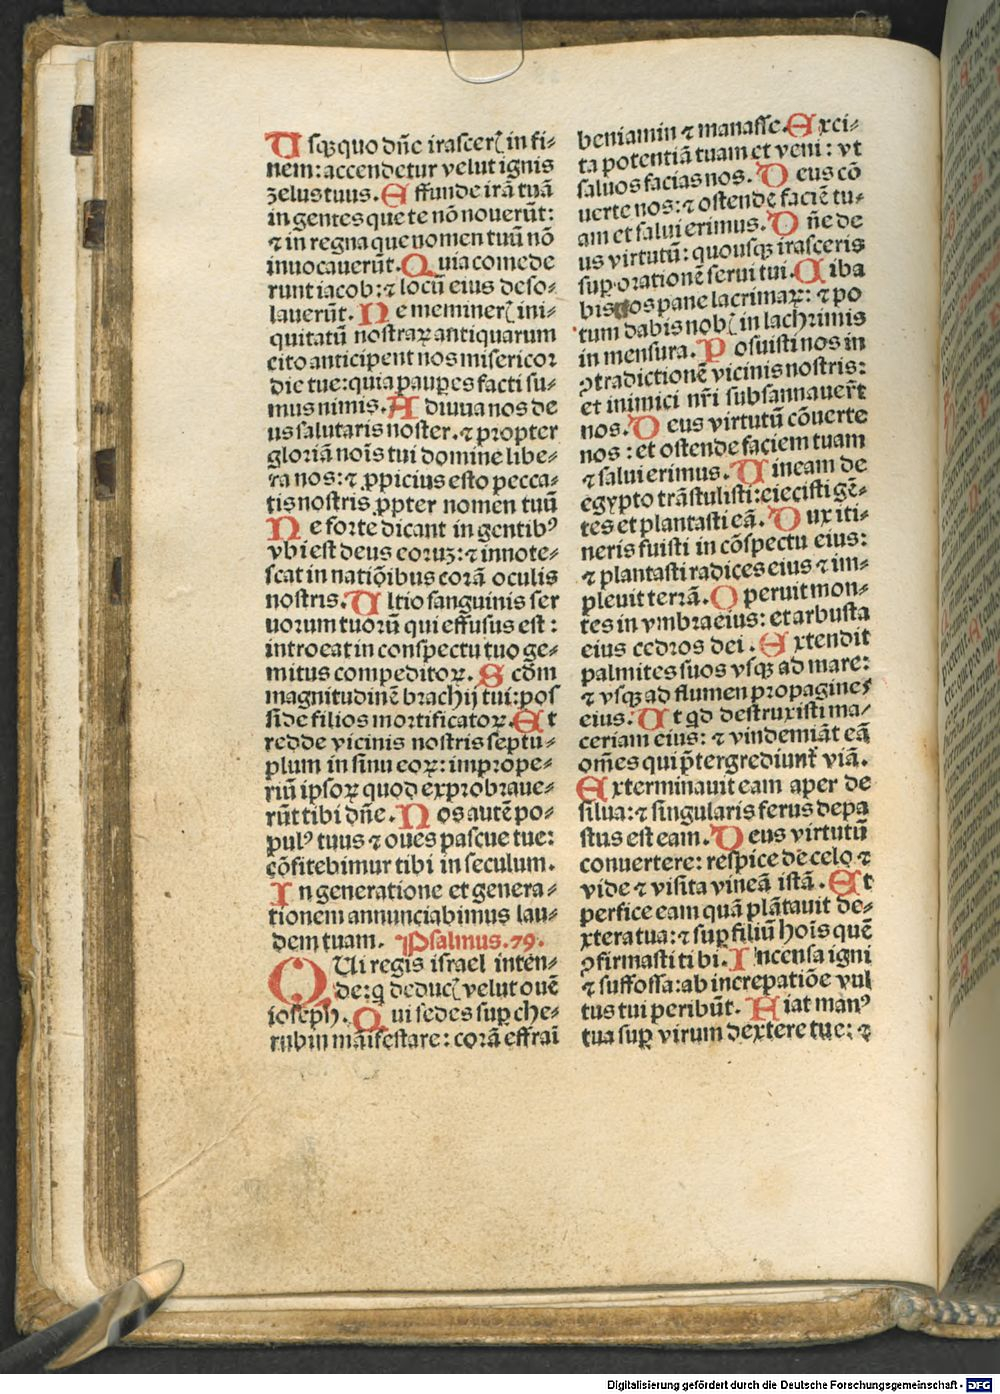 Usqꝫquo dñe irascerꝭ in fi⸗
nem: accendetur velut ignis
zelus tuus. Effunde irã tuã
in gentes que te nõ nouerũt:
⁊ in regna que nomen tuũ nõ
inuocauerũt. Quia comede
runt iacob: ⁊ locũ eius deso⸗
lauerũt. Ne meminerꝭ ini⸗
quitatũ nostraꝝ antiquarum
cito anticipent nos misericor
die tue: quia paupes facti su⸗
mus nimis. Adiuua nos de
us salutaris noster. ⁊ propter
gloriã noĩs tui domine libe⸗
ra nos: ⁊ ꝓpicius esto pecca⸗
tis nostris ꝓpter nomen tuũ
Ne forte dicant in gentibꝰ
vbi est deus eoruꝫ: ⁊ innote⸗
scat in natiõibus corã oculis
nostris. Ultio sanguinis ser
uorum tuorũ qui effusus est:
introeat in conspectu tuo ge⸗
mitus compeditoꝝ. Scðm
magnitudinẽ brachij tui: pos
side filios mortificatoꝝ. Et
redde vicinis nostris septu⸗
plum in sinu eoꝝ: imprope⸗
riũ ipsoꝝ quod exprobraue⸗
rũt tibi dñe. Nos autẽ po⸗
pulꝰ tuus ⁊ oues pascue tue:
cõfitebimur tibi in seculum.
In generatione et genera⸗
tionem annunciabimus lau⸗
dem tuam. Psalmus.79.
QUi regis israel inten⸗
de: q̃ deducꝭ velut ouẽ
ioseph. Qui sedes suꝑ che⸗
rubin mãifestare: corã effraĩ
beniamin ⁊ manasse. Exci⸗
ta potentiã tuam et veni: vt
saluos facias nos. Deus cõ
uerte nos: ⁊ ostende faciẽ tu⸗
am et salui erimus. Dñe de
us virtutũ: quousqꝫ irasceris
suꝑ orationẽ serui tui. Ciba
bis nos pane lacrimaꝝ: ⁊ po
tum dabis nobꝭ in lachrimis
in mensura. Posuisti nos in
ꝯtradictionẽ vicinis nostris:
et inimici nr̃i subsannauer̃t
nos. Deus virtutũ cõuerte
nos: et ostende faciem tuam
⁊ salui erimus. Uineam de
egypto trãstulisti: eiecisti gẽ⸗
tes et plantasti eã. Dux iti⸗
neris fuisti in cõspectu eius:
⁊ plantasti radices eius ⁊ im⸗
pleuit terrã. Operuit mon⸗
tes in vmbra eius: et arbusta
eius cedros dei. Extendit
palmites suos vsqꝫ ad mare:
⁊ vsqꝫ ad flumen propagines
eius. Ut qd destruxisti ma⸗
ceriam eius: ⁊ vindemiãt eã
om̃es qui p̃tergrediunt᷑ viã.
Exterminauit eam aper de
silua: ⁊ singularis ferus depa
stus est eam. Deus virtutũ
conuertere: respice de celo ⁊
vide ⁊ visita vineã istã. Et
perfice eam quã plãtauit de⸗
xtera tua: ⁊ suꝑ filiũ hoĩs quẽ
ꝯfirmasti tibi. Incensa igni
⁊ suffossa: ab increpatiõe vul
tus tui peribũt. Fiat manꝰ
tua suꝑ virum dextere tue: ⁊
Digitalisierung gefördert durch die Deutsche Forschungsgemeinschaft - DFG